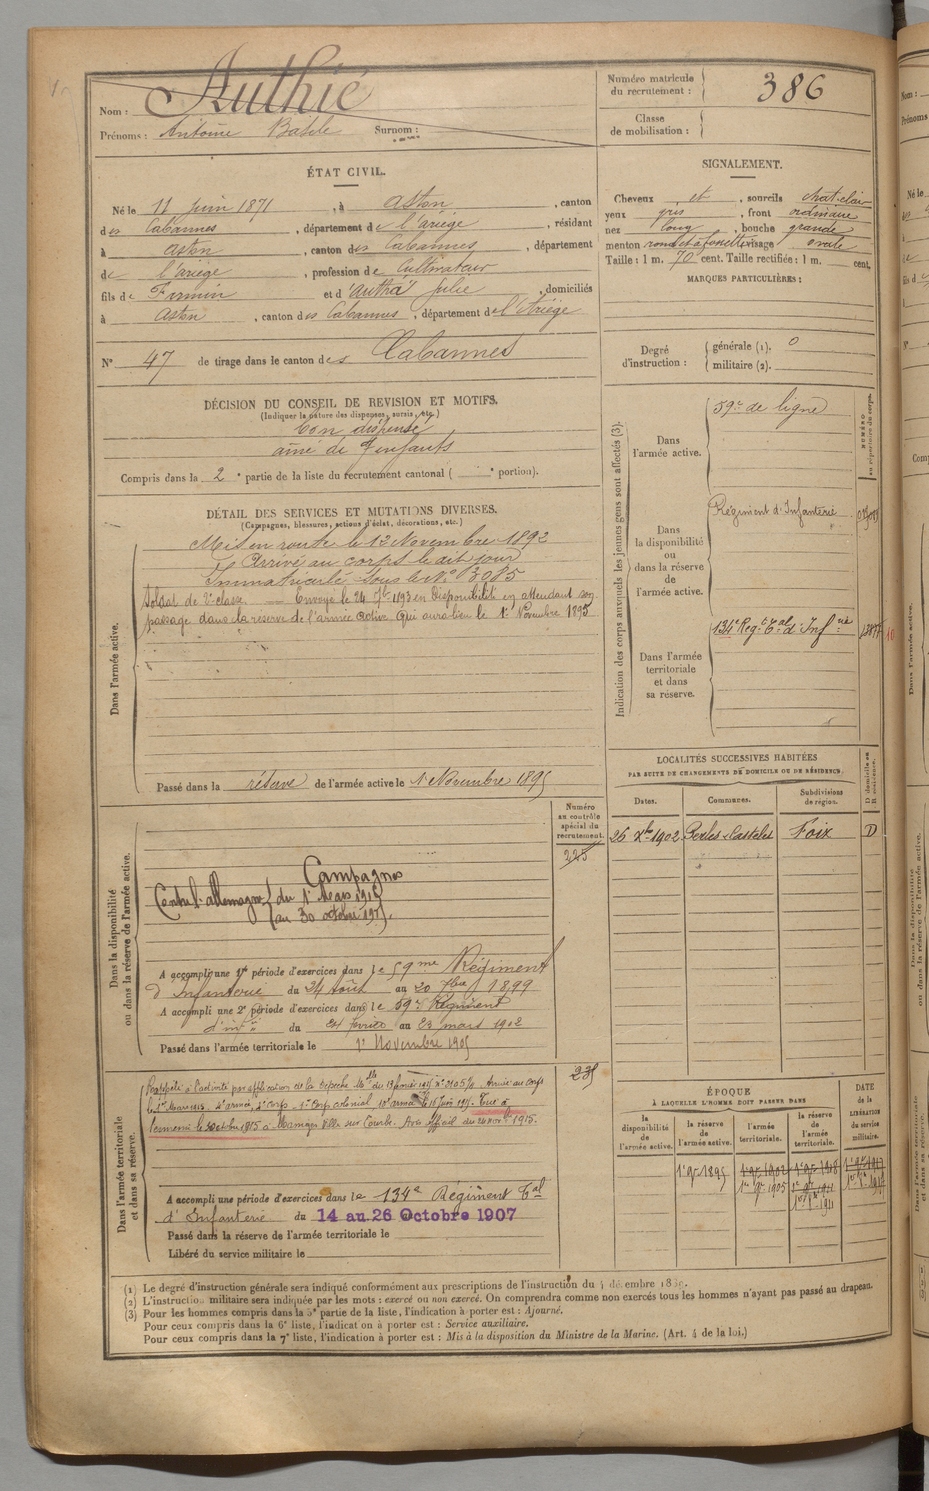 Nom : Authié
Prénoms : Antoine Basile Surnom :
Numéro matricule du recrutement : 386
Classe de mobilisation :
ÉTAT CIVIL.
Né le 11 juin 1871, à Aston, canton
des Cabannes, département de l'ariège, résidant
à Aston, canton des Cabannes, département
de l'ariège, profession de Cultivateur
fils de Firmin et d'Authié Julie, domiciliés
à Aston, canton des Cabannes, département de l'Ariège
N° 47 de tirage dans le canton des Cabannes
SIGNALEMENT.
Cheveux et, sourcils chat-clair
yeux gris, front ordinaire
nez long, bouche grande
menton rond et à fossette visage ovale
Taille : 1 m. 70 cent. Taille rectifiée : 1 m. cent.
MARQUES PARTICULIÈRES :
Degré d'instruction : générale (1). 0
militaire (2).
DÉCISION DU CONSEIL DE REVISION ET MOTIFS.
(Indiquer la nature des dispenses, sursis, etc.)
bon dispensé
ainé de 7 enfants
Compris dans la 2e partie de la liste du recrutement cantonal ( e portion).
DÉTAIL DES SERVICES ET MUTATIONS DIVERSES.
(Campagnes, blessures, actions d'éclat, décorations, etc.)
Dans l'armée active.
Mis en route le 12 Novembre 1892
Arrivé au corps le dit jour
Immatriculé sous le N° 3085
Soldat de 2e classe. Envoyé le 24 7bre 1893 en Disponibilité en attendant son
passage dans la réserve de l'armée active qui aura lieu le 1er Novembre 1895
Passé dans la réserve de l'armée active le 1er Novembre 1895
Indication des corps auxquels les jeunes gens sont affectés (3).
NUMÉRO au répertoire du corps.
Dans l'armée active. 59e de ligne
Dans la disponibilité ou dans la réserve de l'armée active. Régiment d'Infanterie
Dans l'armée territoriale et dans sa réserve. 134e Regt tal d'Infrie
LOCALITÉS SUCCESSIVES HABITÉES
PAR SUITE DE CHANGEMENTS DE DOMICILE OU DE RÉSIDENCE.
Dates. Communes. Subdivisions de région. D domicile ou R résidence.
26 Xbre 1902 Perles-Castelet Foix D
Dans la disponibilité ou dans la réserve de l'armée active.
Numéro au contrôle spécial du recrutement.
225
Campagnes
Contre l'allemagne du 1er Mars 1915
au 30 octobre 1915.
A accompli une 1re période d'exercices dans le 59me Régiment
d'Infanterie du 24 août au 20 7bre 1899
A accompli une 2e période d'exercices dans le 59e Régiment
d'infie du 24 février au 23 mars 1902
Passé dans l'armée territoriale le 1er Novembre 1905
Dans l'armée territoriale et dans sa réserve.
Rappelé à l'activité par application de la Dépêche Mlle du 19 février 1915 Arrivé au corps
le 1er Mars 1915. 1er Corps colonial Tué à
l'ennemi le 30 octobre 1915 à
A accompli une période d'exercices dans le 134e Régiment tal
d'Infanterie du 14 au 26 Octobre 1907
Passé dans la réserve de l'armée territoriale le
Libéré du service militaire le
ÉPOQUE
À LAQUELLE L'HOMME DOIT PASSER DANS
la disponibilité de l'armée active. la réserve de l'armée active. l'armée territoriale. la réserve de l'armée territoriale.
DATE de la LIBÉRATION du service militaire.
(1) Le degré d'instruction générale sera indiqué conformément aux prescriptions de l'instruction du 4 décembre
(2) L'instruction militaire sera indiquée par les mots : exercé ou non exercé. On comprendra comme non exercés tous les hommes n'ayant pas passé au drapeau.
(3) Pour les hommes compris dans la 5e partie de la liste, l'indication à porter est : Ajourné.
Pour ceux compris dans la 6e liste, l'indication à porter est : Service auxiliaire.
Pour ceux compris dans la 7e liste, l'indication à porter est : Mis à la disposition du Ministre de la Marine. (Art. 4 de la loi.)